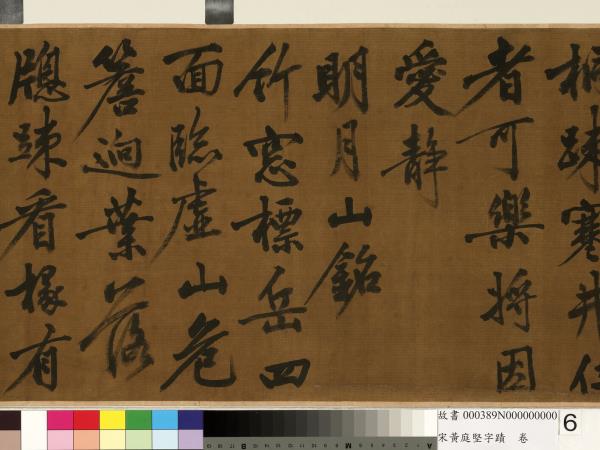 桐踈寒井仁
者可樂將因
愛靜
明月山銘
竹窓標岳四
面臨虛山危
簷逈葉落
牕踈看椽有
故書 000389N000000000
宋黃庭堅字蹟 卷
6